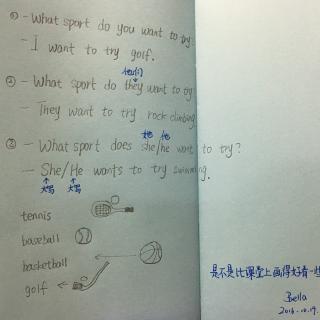 ① - What sport do you want to try
- I want to try golf.
他(她)们
② - What sport do they want to try
- They want to try rock climbing
她 他
③ - What sport does she/he want to try?
- She/He wants to try swimming.
大写 大写
tennis
baseball
basketball
golf
是不是比课堂上画得好看一些
Bella
2016.10.19.